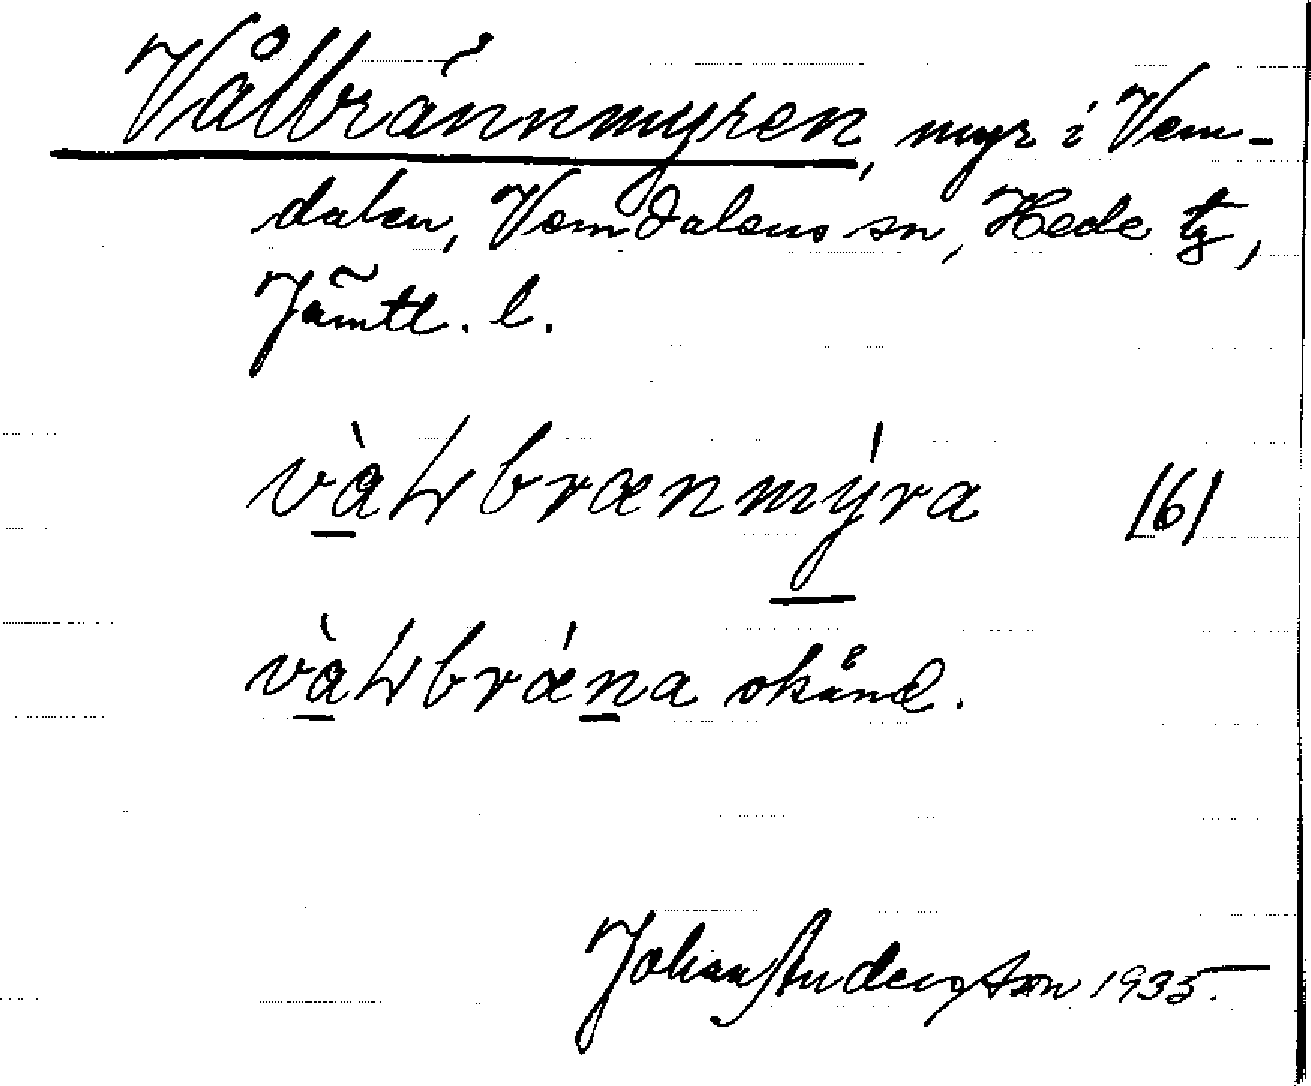 Vålbrännmyren, myr i Vem-
dalen, Vemdalens sn, Hede tg,
Jämtl. l.
brænmýra /6/
okänd.
Johan Anderston 1935.